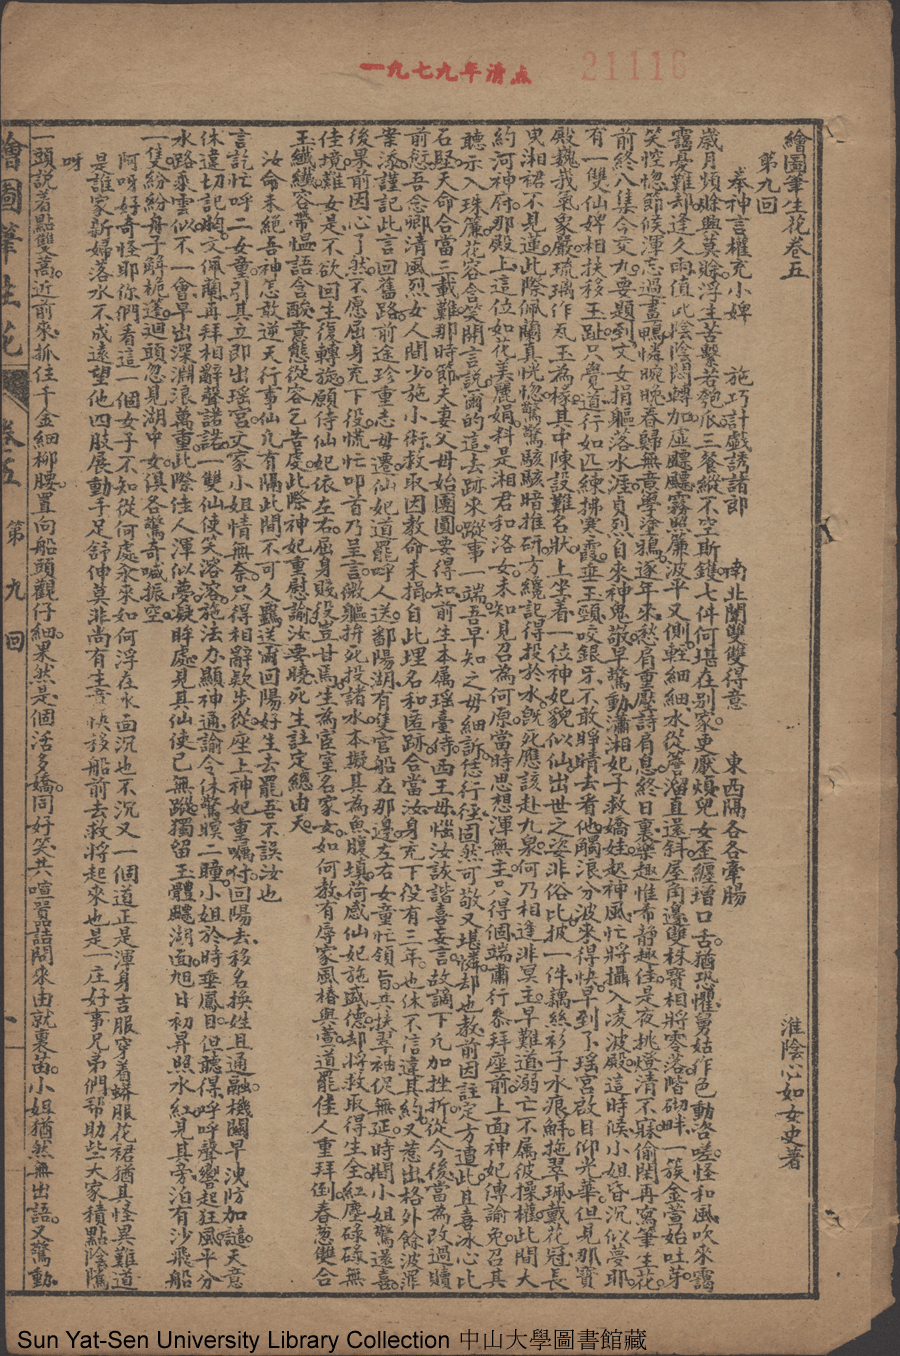 一九七九年清点
21116
繪圖筆生花卷五
淮陰心如女史著
第九回
奉神言權充小婢 施巧計戲誘諸郎 南北闈雙雙得意 東西隔各各牽腸
歲月頻賒興莫賒。浮生苦繫若匏瓜。三餐縱不空斯鑊。七件何堪在別家。更厭煩兒女歪纏增口舌。猶恐懼舅姑作色動咨嗟。怪和風吹來靄
靄。喜難却逢久雨。值此陰陰闇轉加。虛飄飄霧照簾波平又側。輕細細水從簷溜直還斜。屋角邊雙株寶相將零落。階砌畔一簇金萱始吐芽。
笑悾惚節候渾忘過。畫鴨憐晼晚春歸無意學塗鴉。逐年來愁肩重壓詩肩息。終日裏樂趣惟希靜趣佳。是夜挑燈清不寐。偷閑再寫筆生花。
前終八集今交九。要題到文女捐軀落水涯。貞烈自來神鬼敬。早驚動瀟湘妃子救嬌娃。起神風忙將攝入凌波殿。這時候小姐昏沉似夢耶。
有一雙仙婢相扶移玉趾。只覺道行如匹練拂寒霞。垂玉頸咬銀牙。不敢睜睛去看他。觸浪分波來得快。早到了瑤宮啟目仰光華。但見那寶
殿巍我氣象嚴。琉璃作瓦玉為椽。其中陳設難名狀。上坐着一位神妃貌似仙。出世之姿非俗比。披一件藕絲衫子水痕鮮。拖翠珮戴花冠。長
曳湘裙不見蓮。此際佩蘭真恍惚。驚驚駭駭暗推研。方纔記得投於水。旣死應該赴九泉。何乃相逢非冥王。早難道溺亡不屬彼操權。此間大
約河神府。那殿上這位如花美麗娟。料是湘君和洛女。未知見召為何原。當時思想渾無主。只得個端肅行叅拜座前。上面神妃傳諭免。召其
聽示入珠簾。花容含笑開言說。爾的這去跡來蹤事一端。吾早知之毋細訴。恁行徑固然可敬又堪憐。却也教前因註定方遭此。且喜冰心比
石堅。天命合當三載難。那時節夫妻父母始團圓。要得知前生本屬瑤臺侍。西王母惱汝詼諧喜妄言。故謫下凡加挫折。從今後當為改過贖
前愆。吾念卿清風烈女人間少。施小術救取因教命未捐。自此埋名和匿跡。合當汝身充下役有三年。也休不信違其約。又惹出格外餘波罪
業添。謹記此言回舊路。前途珍重志毋遷。仙妃道罷呼人送。鄱陽湖有隻官船在那邊。左右女童忙領旨。共扶翠袖促無延。時間小姐驚還喜。
後果前因心了然。不愿屈身充下役。慌忙叩首乃呈言。微軀拚死投諸水。本擬其為魚腹填。荷感仙妃施盛德。却將救取得生全。紅塵碌碌無
佳境。難女是不欲回生復轉旋。願侍仙妃依左右。屈身賤役豈甘焉。生為宦室名家女。如何教有辱家風樁與萱。道罷佳人重拜倒。春葱雙合
玉纖纖。容帶慍。語含酸。意態從容乞告虔。此際神妃重慰諭。汝要曉死生註定總由天。
汝命未絕。吾神怎敢逆天行事。仙凡有隔。此間不可久羈。送爾回陽。好生去罷。吾不誤汝也。
言訖忙呼二女童。引其立即出瑤宮。文家小姐情無奈。只得相辭欵步從。座上神妃重囑付。回陽去移名換姓且通融。機關早洩防加譴。天意
休違切記胸。文佩蘭再拜相辭聲諾諾。一雙仙使笑溶溶。施法力。顯神通。諭令休驚瞑二瞳。小姐於時垂鳳目。但聽得呼呼聲響起狂風。平分
水路乘雲似。不一會早出深淵浪萬重。此際佳人渾似夢。凝眸處見其仙使已無蹤。獨留玉體飄湖面。旭日初昇照水紅。見其旁泊有沙飛船
一隻。紛紛舟子解桅篷。迴頭忽見湖中女。俱各驚奇喊振空。
阿呀好奇怪耶。你們看這一個女子。不知從何處汆來。如何浮在水面沉也不沉。又一個道。正是。渾身吉服。穿着蟒服花裙。猶其怪異。難道
是誰家新婦落水不成。遠望他四肢展動。手足舒伸。莫非尚有生意。快移船前去救將起來。也是一庄好事。兄弟們幫助些。大家積點陰隲
呀
一頭說着點雙蒿。近前來抓住千金細柳腰。置向船頭觀仔細。果然是個活多嬌。同好笑。共喧囂。詰問來由就裏苗。小姐猶然無出語。又驚動
繪圖筆生花 卷五 第九回 一
Sun Yat-Sen University Library Collection 中山大學圖書館藏